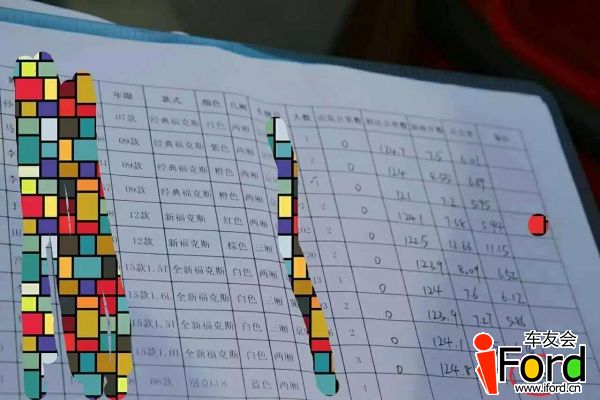 年限 款式 颜色 几厢 人数 出发公里数 到达公里数
孙 07款 经典福克斯 红色 两厢 1 0 124.7 7.5 6.01
马 09款 经典福克斯 紫色 两厢 2 0 124 8.55 6.89
李 09款 经典福克斯 橙色 两厢 0 121 7.2 5.95
李 09款 经典福克斯 橙色 两厢 2 0 124.1 7.68
12款 新福克斯 红色 两厢 2 0 122.5 13.66
12款 新福克斯 棕色 三厢 2 0 123.9 8.09 6.52
15款1.5T 全新福克斯 白色 两厢 1 0 124 7.6 6.12
15款1.6L 全新福克斯 白色 两厢 2 0 123.9 7.27
15款1.5T 全新福克斯 白色 三厢 2 0 124.1
15款1.0T 全新福克斯 白色 两厢 3 0 124.8
08款 别克GL8 蓝色 两厢 1
车友会
iFord
www.iford.cn